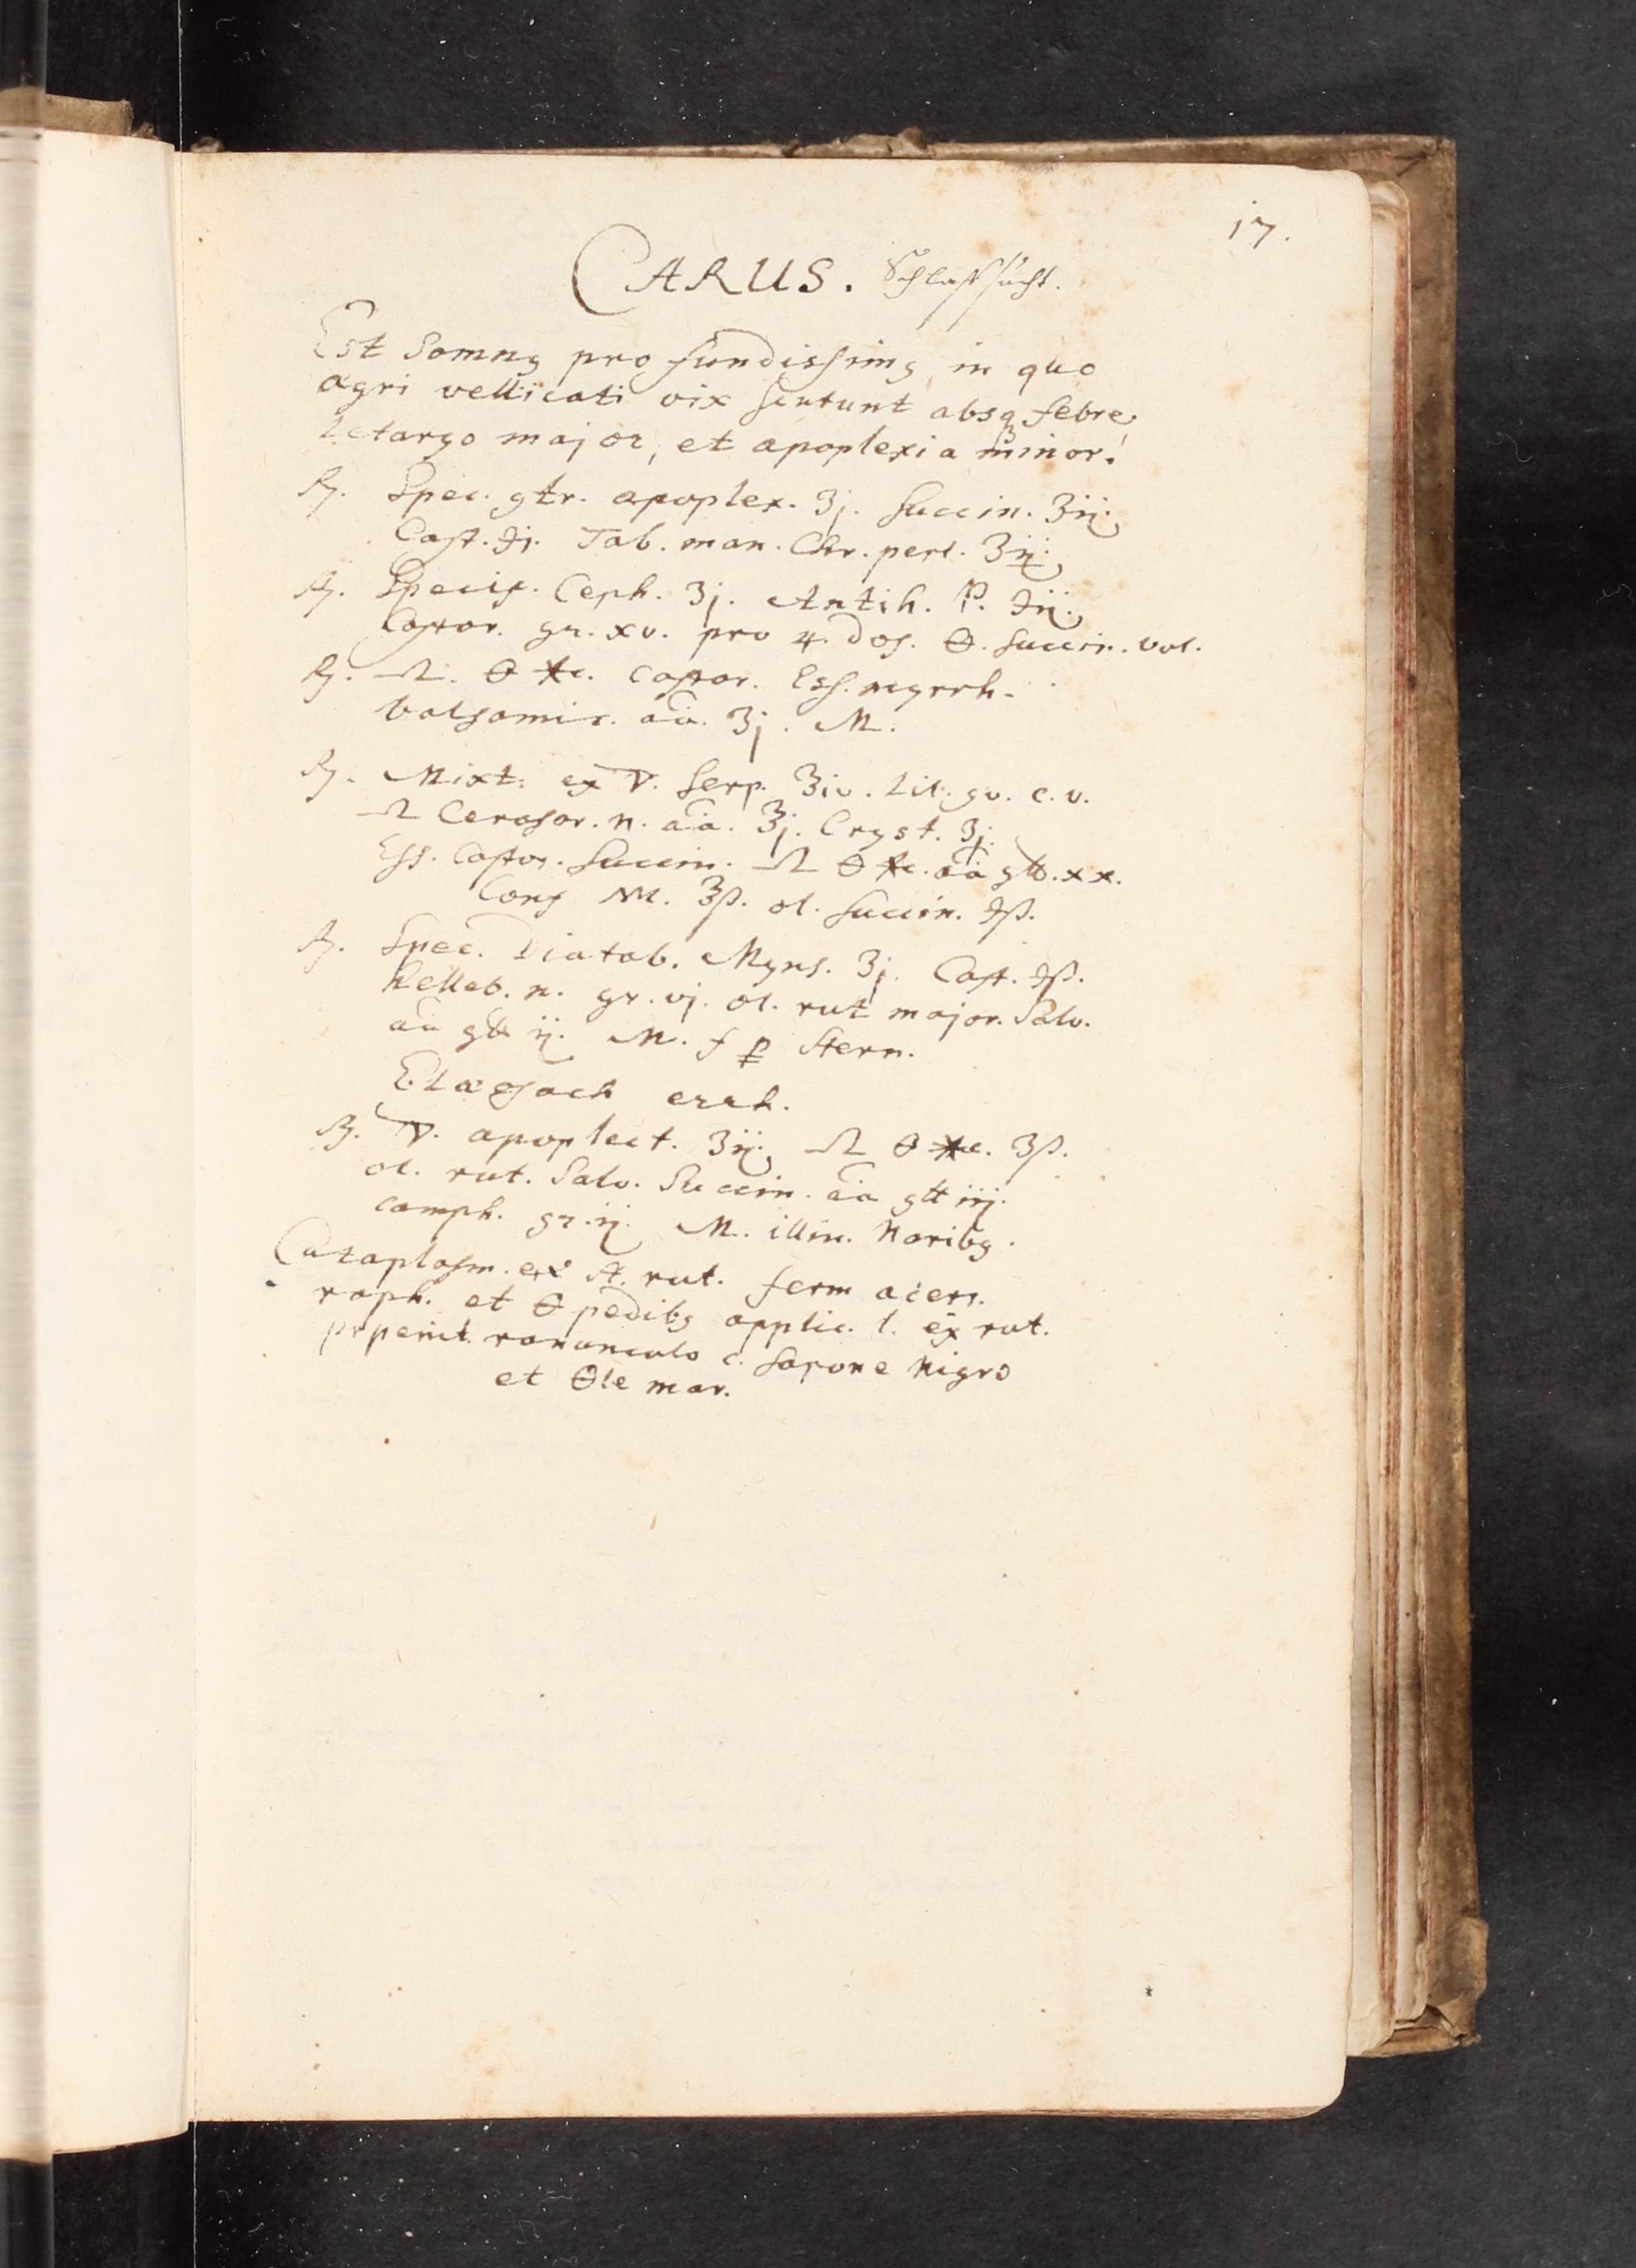 17.
CARUS. Schlaffsucht.
Est Somnꝯ profundissimꝯ in quo
ægri vellicati vix sentunt absqꝫ febre,
Letargo major, et apoplexia minor.
℞. Spec. gtr. apoplex. ʒj. Succin. ʒij.
Cast. ℈j. Tab. man. Chr. perl. ʒij.
℞. Specif. Ceph. ʒj. Antih. P. ℈ij.
Castor. gr. xv. pro 4. dos. 🜔. Succin. vol.
℞. Ω. 🜔 ✶c. Castor. Ess. myrrh.
balsamir. aa. ʒj. M.
℞. Mixt. ex ▽. Serp. ℥iv. Lil. gv. c. v.
Ω Cerasor. n. aa. ℥j. Cryst. ʒj.
Ess. Castor. Succin. Ω 🜔 ✶c. aa gtt. xx.
Conf ol. Succin. ℈ß.
℞. Spec. Diatab. Myns. ʒj. Cast. ℈ß.
helleb. n. gr. vj. ol. rut major. Salv.
aa gtt ij. M. f P Stern.
Elæosach errh.
℞. ▽. apoplect. ʒij. Ω 🜔 ✶c. ʒß.
ol. rut. Salv. Succin. aa gtt iij.
camph. gr. ij. M. illin. Naribꝯ.
Cataplasm. ex rut. ferm acerr.
raph. et 🜔 pedibꝯ applic. l. ex rut.
ranunculo c. Sapone Nigro
et 🜔le mar.